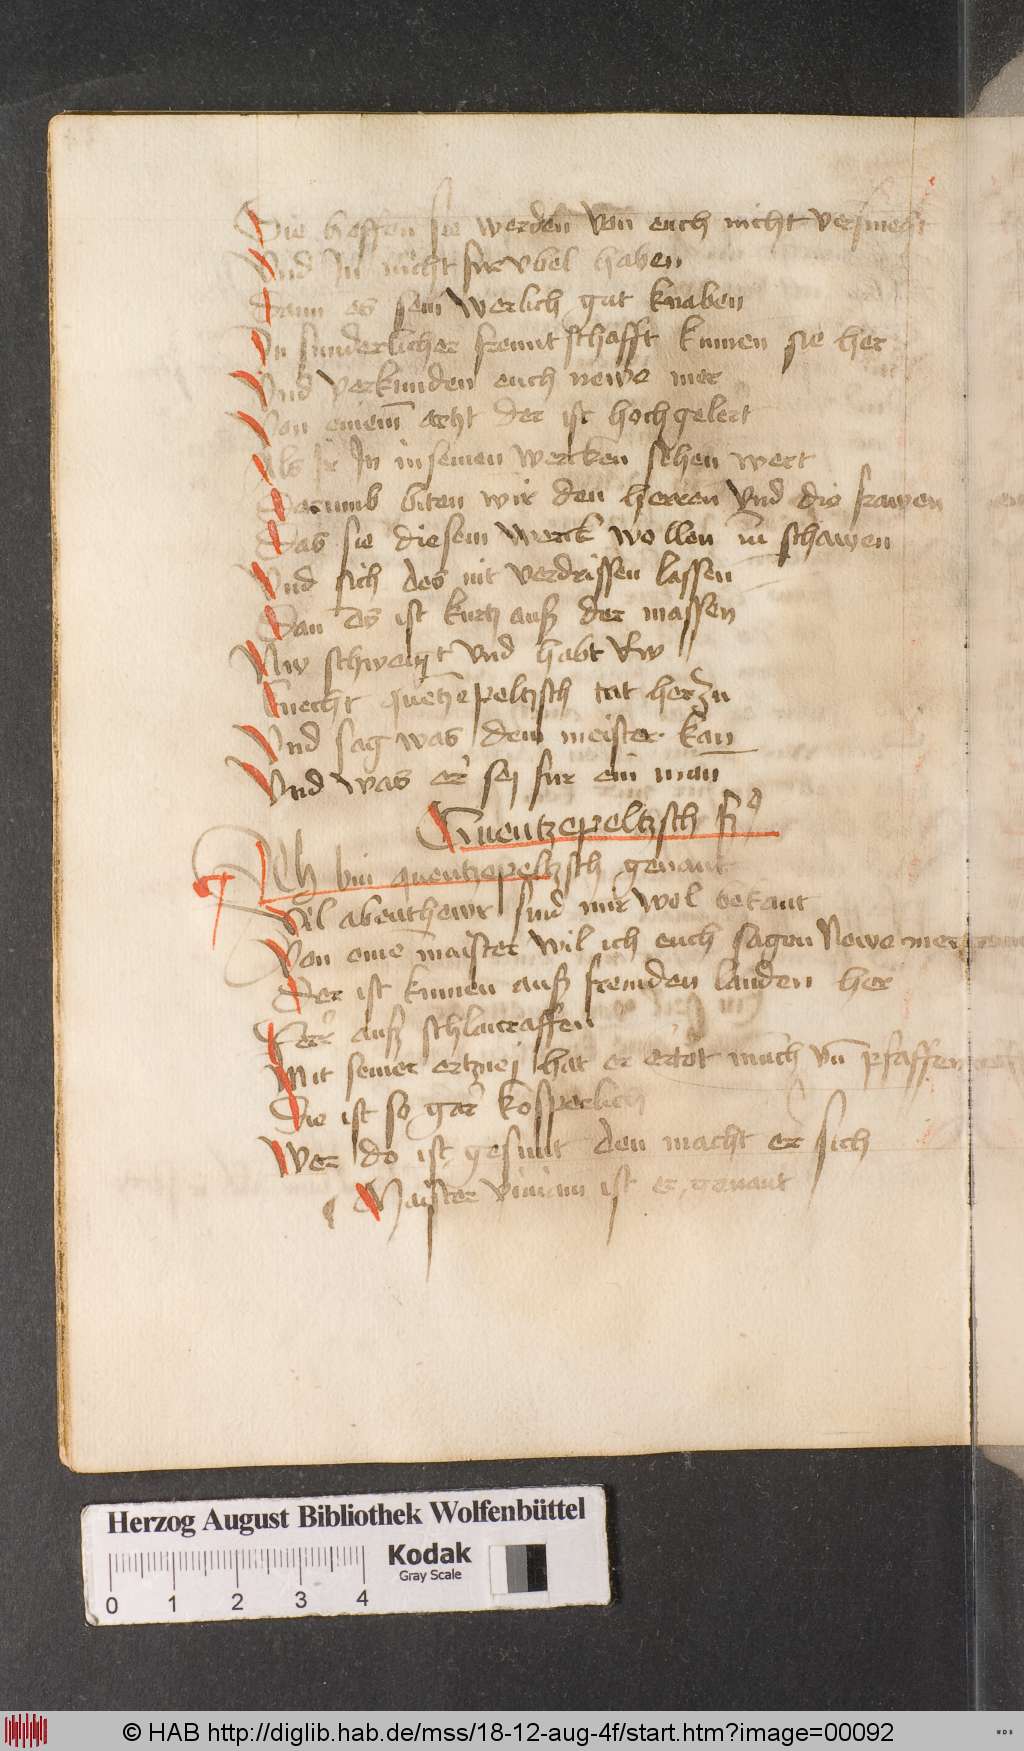 Die hoffen sie werden von euch nicht versmecht
Vnd In nicht fur vbel haben
Dann es sein werlich gut knaben
In sunderlicher freuntschafft kumen sie her
Vnd verkunden euch newe mer
Von einem artzt der ist hochgelert
Als ir In in seinen wercken sehen wert
Darumb biten wir den herren vnd die frawen
Das sie diesem werck wollen zu schawen
Vnd sich des nit verdrissen lassen
Dan es ist kurtz auß der massen
Nw schweigt vnd habt Rw
knecht quentzepeltzsch trit herzu
Vnd sag was dein meister kan
Vnd was er sey fur ein man
Quentzepeltzsch
Ich bin quentzepeltzsch genant
Vil abenthewr sind mir wol bekant
Von eine maister wil ich euch sagen Newe mer
Der ist kumen auß fremden landen her
Ferr auß schlauraffen
Mit seiner ertzney hat er ertot munch vn pfaffen
Die ist so gar kosperlich
Wer do ist gesunt den macht er sich
Maister viuian ist er genant
Herzog August Bibliothek Wolfenbüttel
Kodak
Gray Scale
0 1 2 3 4
© HAB http://diglib.hab.de/mss/18-12-aug-4f/start.htm?image=00092